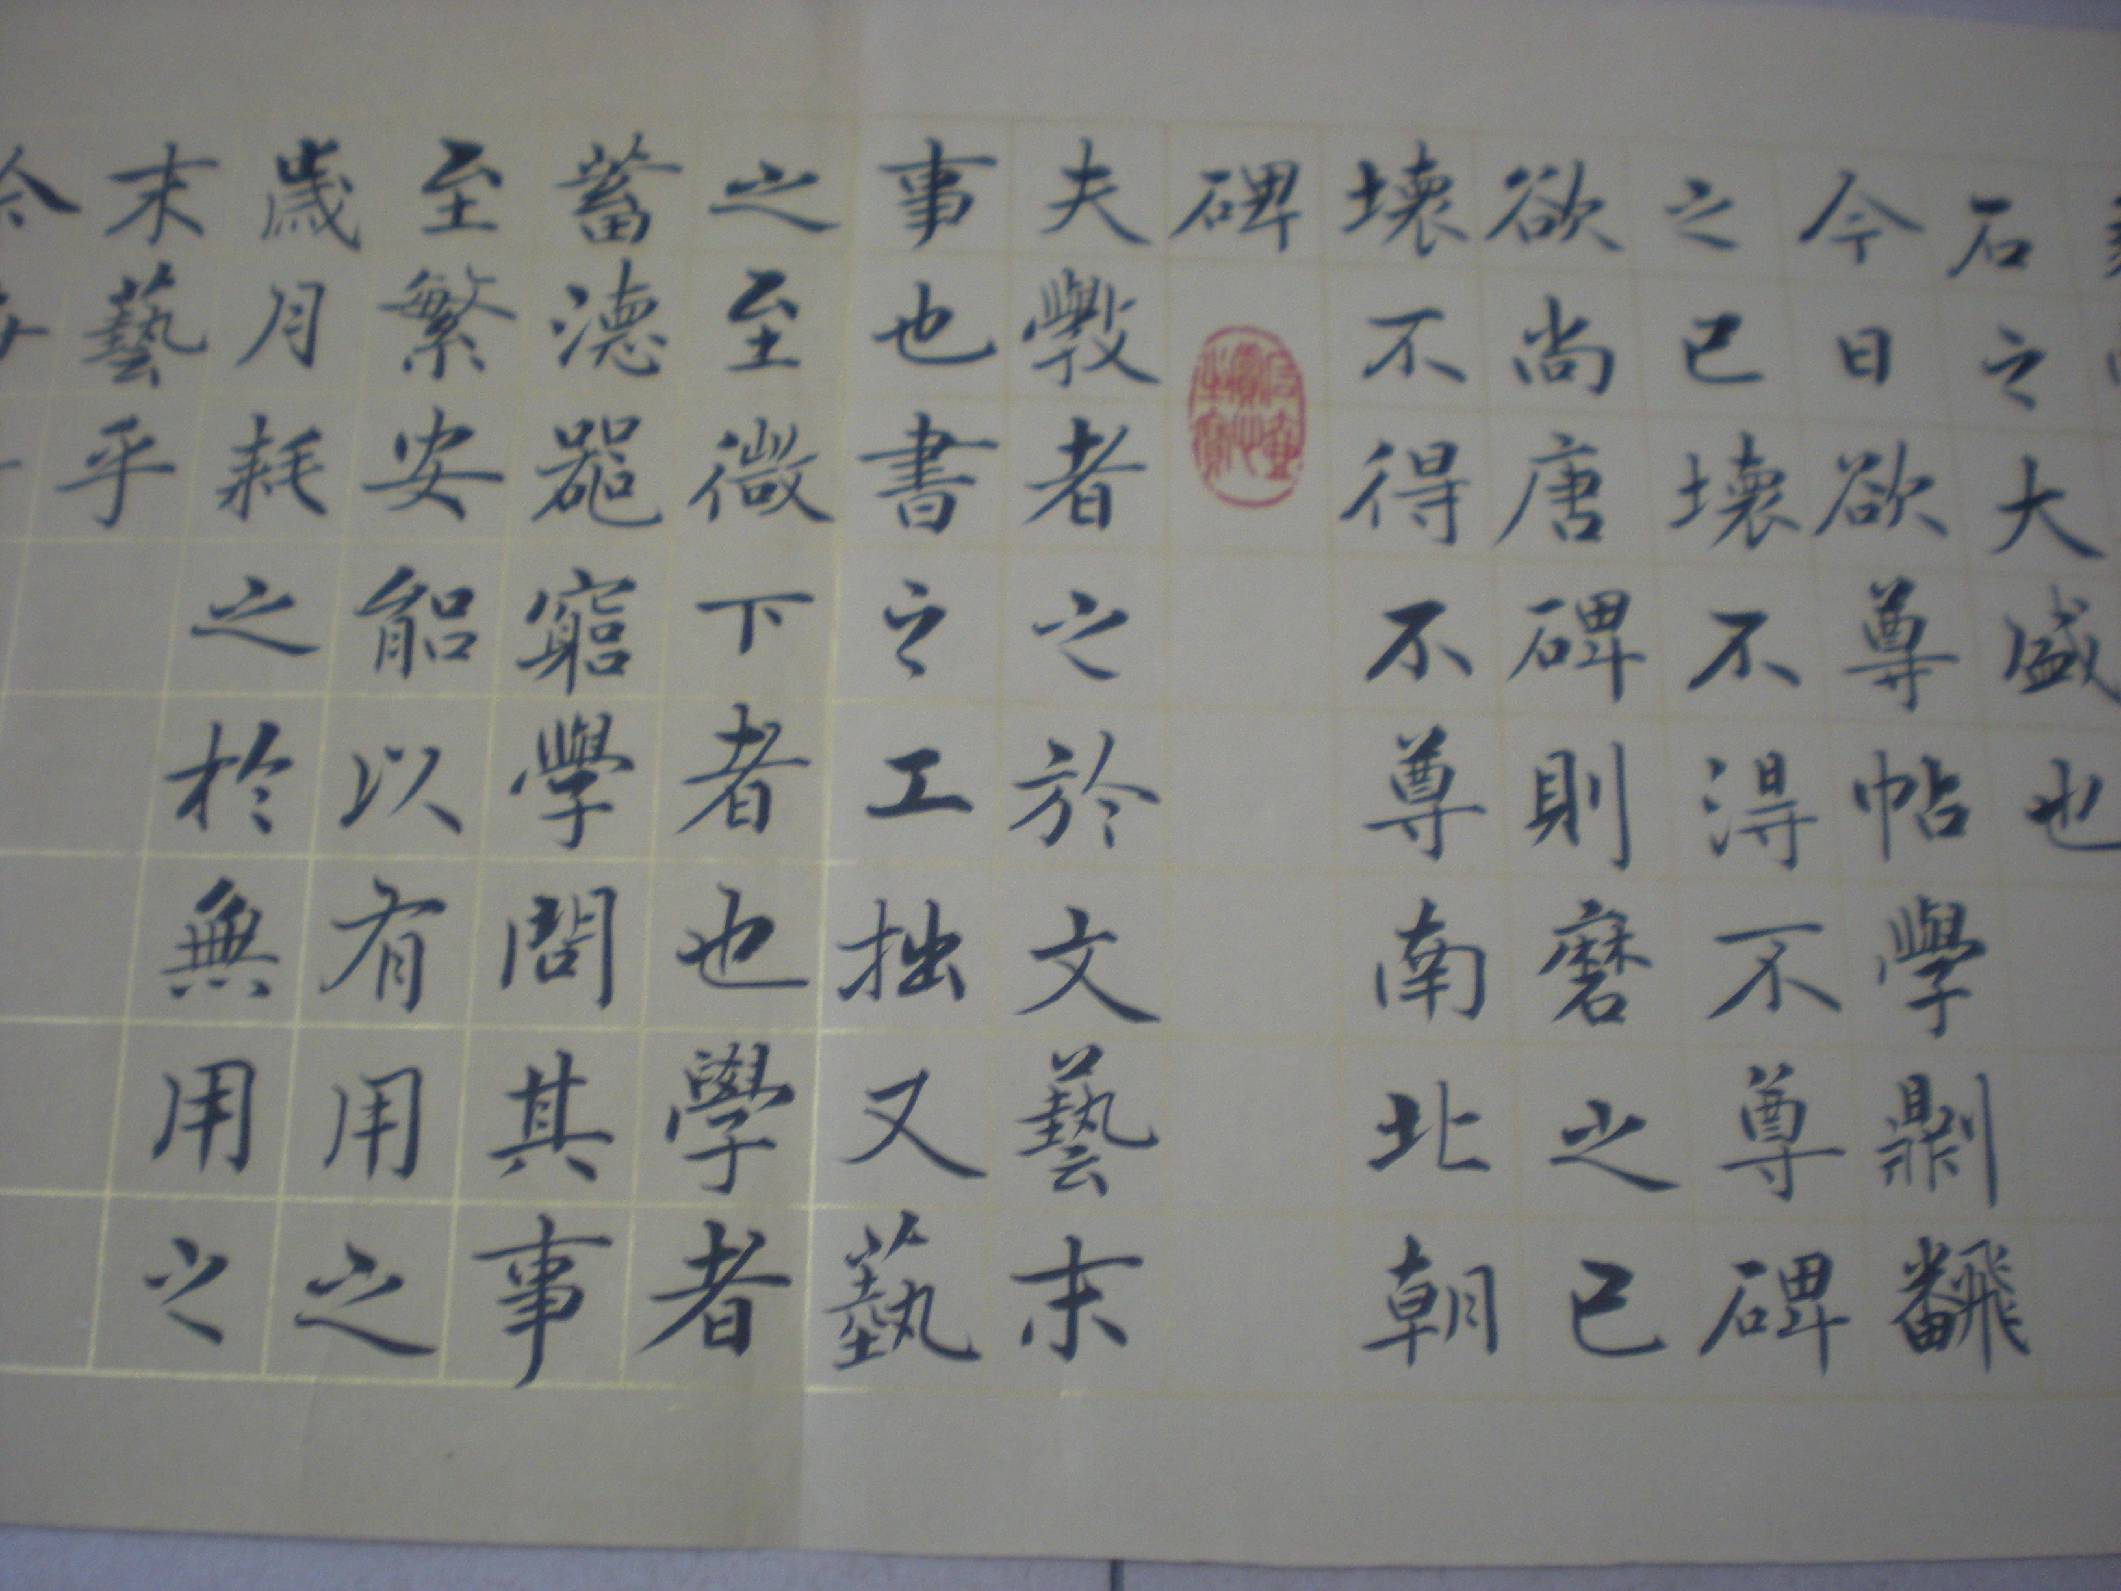 石之大盛也
今日欲尊帖學剘飜
之已壞不得不尊碑
欲尚唐碑則磨之已
壞不得不尊南北朝
碑
夫斆者之於文藝末
事也書之工拙又藝
之至微下者也學者
蓄德器窮學問其事
至繁安能以有用之
歲月耗之於無用之
末藝乎